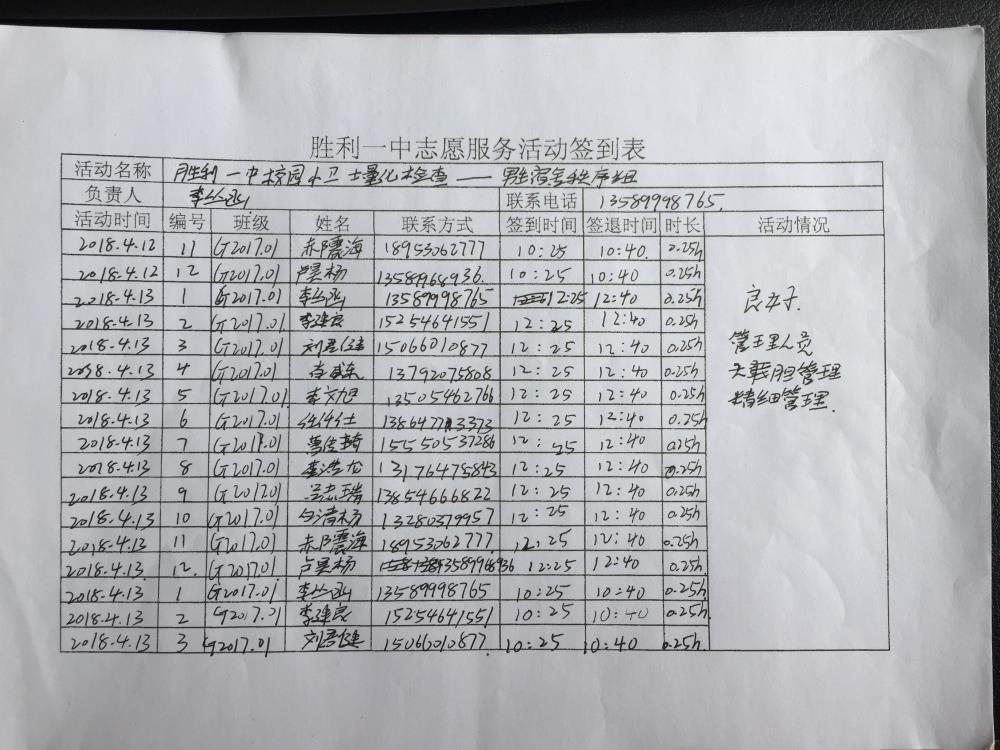 胜利一中志愿服务活动签到表
活动名称 胜利一中校园小卫士量化检查——男生宿舍秩序组
负责人 李丛函 联系电话 13589998765.
活动时间 编号 班级 姓名 联系方式 签到时间 签退时间 时长 活动情况
2018.4.12 11 G2017.01 震海 18953062777 10:25 10:40. 0.25h
2018.4.12 12 G2017.01 卢昊杨 13589968936. 10:25 10:40 0.25h
2018.4.13 1 G2017.01 李丛函 13589998765 12:25 12:40 0.25h
2018.4.13 2 G2017.01. 李建良 15254641551 12:25 12:40 0.25h
2018.4.13 3 G2017.01 刘君健 15066010877 12:25 12:40 0.25h
2018.4.13 4 G2017.01 13792075808 12:25 12:40 0.25h
2018.4.13 5 G2017.01. 李文旭 13505462766 12:25 12:40 0.25h
2018.4.13 6 G2017.01 13864773373 12:25 12:40 0.25h
2018.4.13 7 G2017.01 15550537286 12:25 12:40 0.25h
2018.4.13 8 G2017.01 李浩龙 13176475843 12:25 12:40 0.25h
2018.4.13 9 G201701 吴志瑞 13854666822 12:25 12:40 0.25h
2018.4.13 10 G2017.01 白清杨 13280379957 12:25 12:40 0.25h
2018.4.13 11 G2017.01 震海 18953062777 12:25 12:40 0.25h
2018.4.13 12. G2017.01 卢昊杨 13589968936 12:25 12:40 0.25h
2018.4.13 1 G2017.01 李丛函 13589998765 10:25 10:40 0.25h
2018.4.13 2 G2017.01 李建良 15254641551 10:25 10:40 0.25h
2018.4.13 3 G2017.01 刘君健 15066010877. 10:25 10:40 0.25h
良好.
管理人员
大胆管理
精细管理.